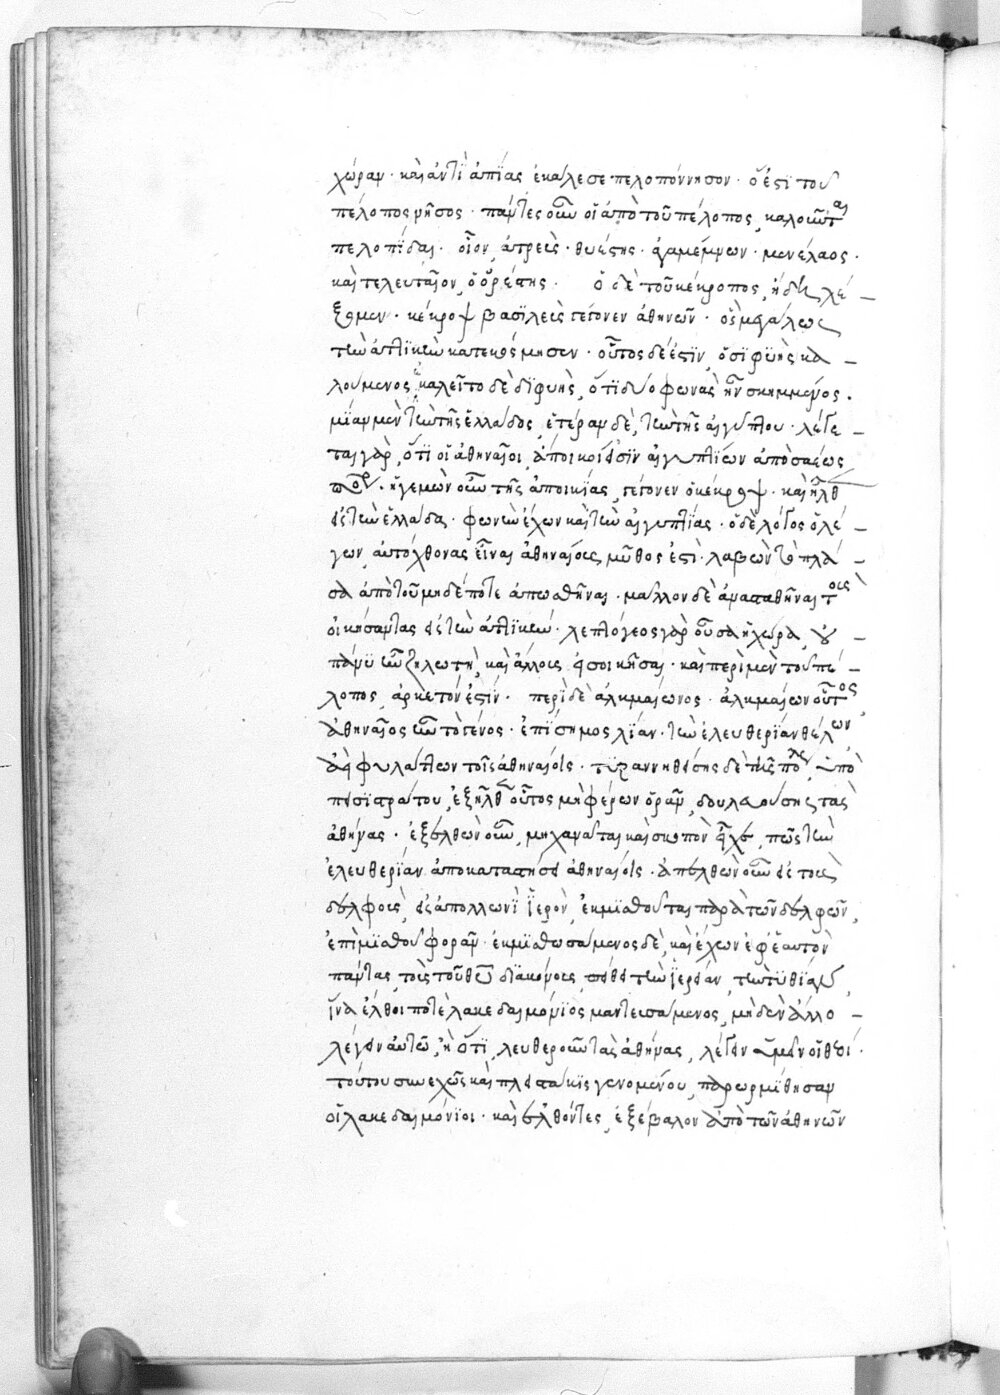 χώραν · καὶ ἀντὶ ἀπΐας ἐκάλεσε πελοπόννησον · ὅ ἐστϊ τοῦ
πέλοπος νῆσος · πάντες οὖν οἱ ἀπὸ τοῦ πέλοπος, καλοῦνται
πελοπΐδαι · οἷον, ἀτρεὺς · θυέστης · ἀγαμέμνων · μενέλαος ·
καὶ τελευταῖον, ὁ ὀρέστης · ὁ δὲ τοῦ κέκροπος, ἤδη λέ-
ξομεν · κέκροψ βασϊλεὺς γέγονεν ἀθηνῶν · ὃς μεγάλως
τὴν ἀττϊκὴν κατεκόσμησεν · οὗτος δέ ἐστϊν, ὁ δϊφυὴς κα-
λούμενος, ἐκαλεῖτο δὲ δϊφυὴς, ὅτϊ δύο φωνὰς ἦν ἠσκημμένος ·
μΐαν μὲν τὴν τῆς ἑλλάδος, ἑτέραν δὲ, τὴν τῆς αἰγύπτου · λέγε-
ται γὰρ, ὅτϊ οἱ ἀθηναῖοι, ἄποικοί εἰσϊν αἰγυπτΐων ἀπὸ σάεως
πόλεως · ἡγεμὼν οὖν τῆς ἀποικΐας, γέγονεν ὁ κέκροψ · καὶ ἦλθεν
εἰς τὴν ἑλλάδα · φωνὴν ἔχων καὶ τὴν αἰγυπτΐας · ὁ δὲ λόγος ὁ λέ-
γων, αὐτόχθονας εἶναι ἀθηναίους, μῦθος ἐστὶ · λαβὼν τὸ πλά
σμα ἀπὸ τοῦ μηδέποτε ἀπωσθῆναι · μᾶλλον δὲ ἀναστῆναι τοὺς
οἰκήσαντας εἰς τὴν ἀττϊκήν · λεπτόγεος γὰρ οὖσα ἡ χώρα, οὐ-
πάνϋ ἦν ζηλωτὴ, καὶ ἄλλοις, εἰσοικῆσαι · καὶ περὶ μὲν τοῦ πέ-
λοπος, ἀρκετόν ἐστϊν · περὶ δὲ ἀλκμαίωνος · ἀλκμαίων οὗτος,
ἀθηναῖος ἦν τὸ γένος · ἐπΐσημος λΐαν · τὴν ἐλευθερΐαν θέλων
ἀεὶ φυλάττων τοῖς ἀθηναίοις · τϋραννηθείσης δὲ τῆς πόλεως, ὑπὸ
πεισϊστράτου, ἐξῆλθεν οὗτος μὴ φέρων ὁρᾶν, δουλευούσης τὰς
ἀθήνας · ἐξελθὼν οὖν, μηχανᾶται καὶ σκοπὸν εἶχε, πῶς τὴν
ἐλευθερΐαν ἀποκαταστήσει ἀθηναίοις · ἀπελθὼν οὖν εἰς τοὺς
δελφοὺς, εἰς ἀπόλλωνϊ ϊερὸν, ἐκμϊσθοῦται παρὰ τῶν δελφῶν,
ἐπὶ μϊσθοῦ φορᾶν · ἐκμϊσθωσάμενος δὲ, καὶ ἔχων ἐφ' ἑαυτὸν
πάντας, τοὺς τοῦ θεοῦ δϊακόνους, πείθει τὴν ϊέρειαν, τὴν πϋθΐαν,
ἵνα ἔλθοι ποτὲ λακεδαιμόνϊος μαντευσάμενος, μηδὲν ἄλλο-
λέγειν αὐτῶ, ἢ ὅτϊ, ἐλευθεροῦν τὰς ἀθήνας, λέγειν ὑμῖν οἱ θεοί ·
τούτου συνεχῶς καὶ πλειστάκις γενομένου, παρωρμΐθησαν
οἱ λακεδαιμόνϊοι · καὶ ἐλθόντες, ἐξέβαλον ἀπὸ τῶν ἀθηνῶν